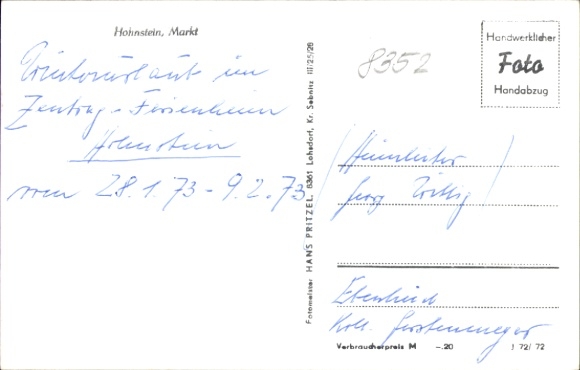 Hohnstein, Markt
Winterurlaub im
Zentrag-Ferienheim
Hohnstein
vom 28.1.73 - 9.2.73
Fotomeister HANS PRITZEL, 8361 Lohsdorf, Kr. Sebnitz III/25/28
8352
Handwerklicher
Foto
Handabzug
(Heimleiter
Georg Wittig)
Ebenheit
Koll.
Verbraucherpreis M –.20 J 72/72